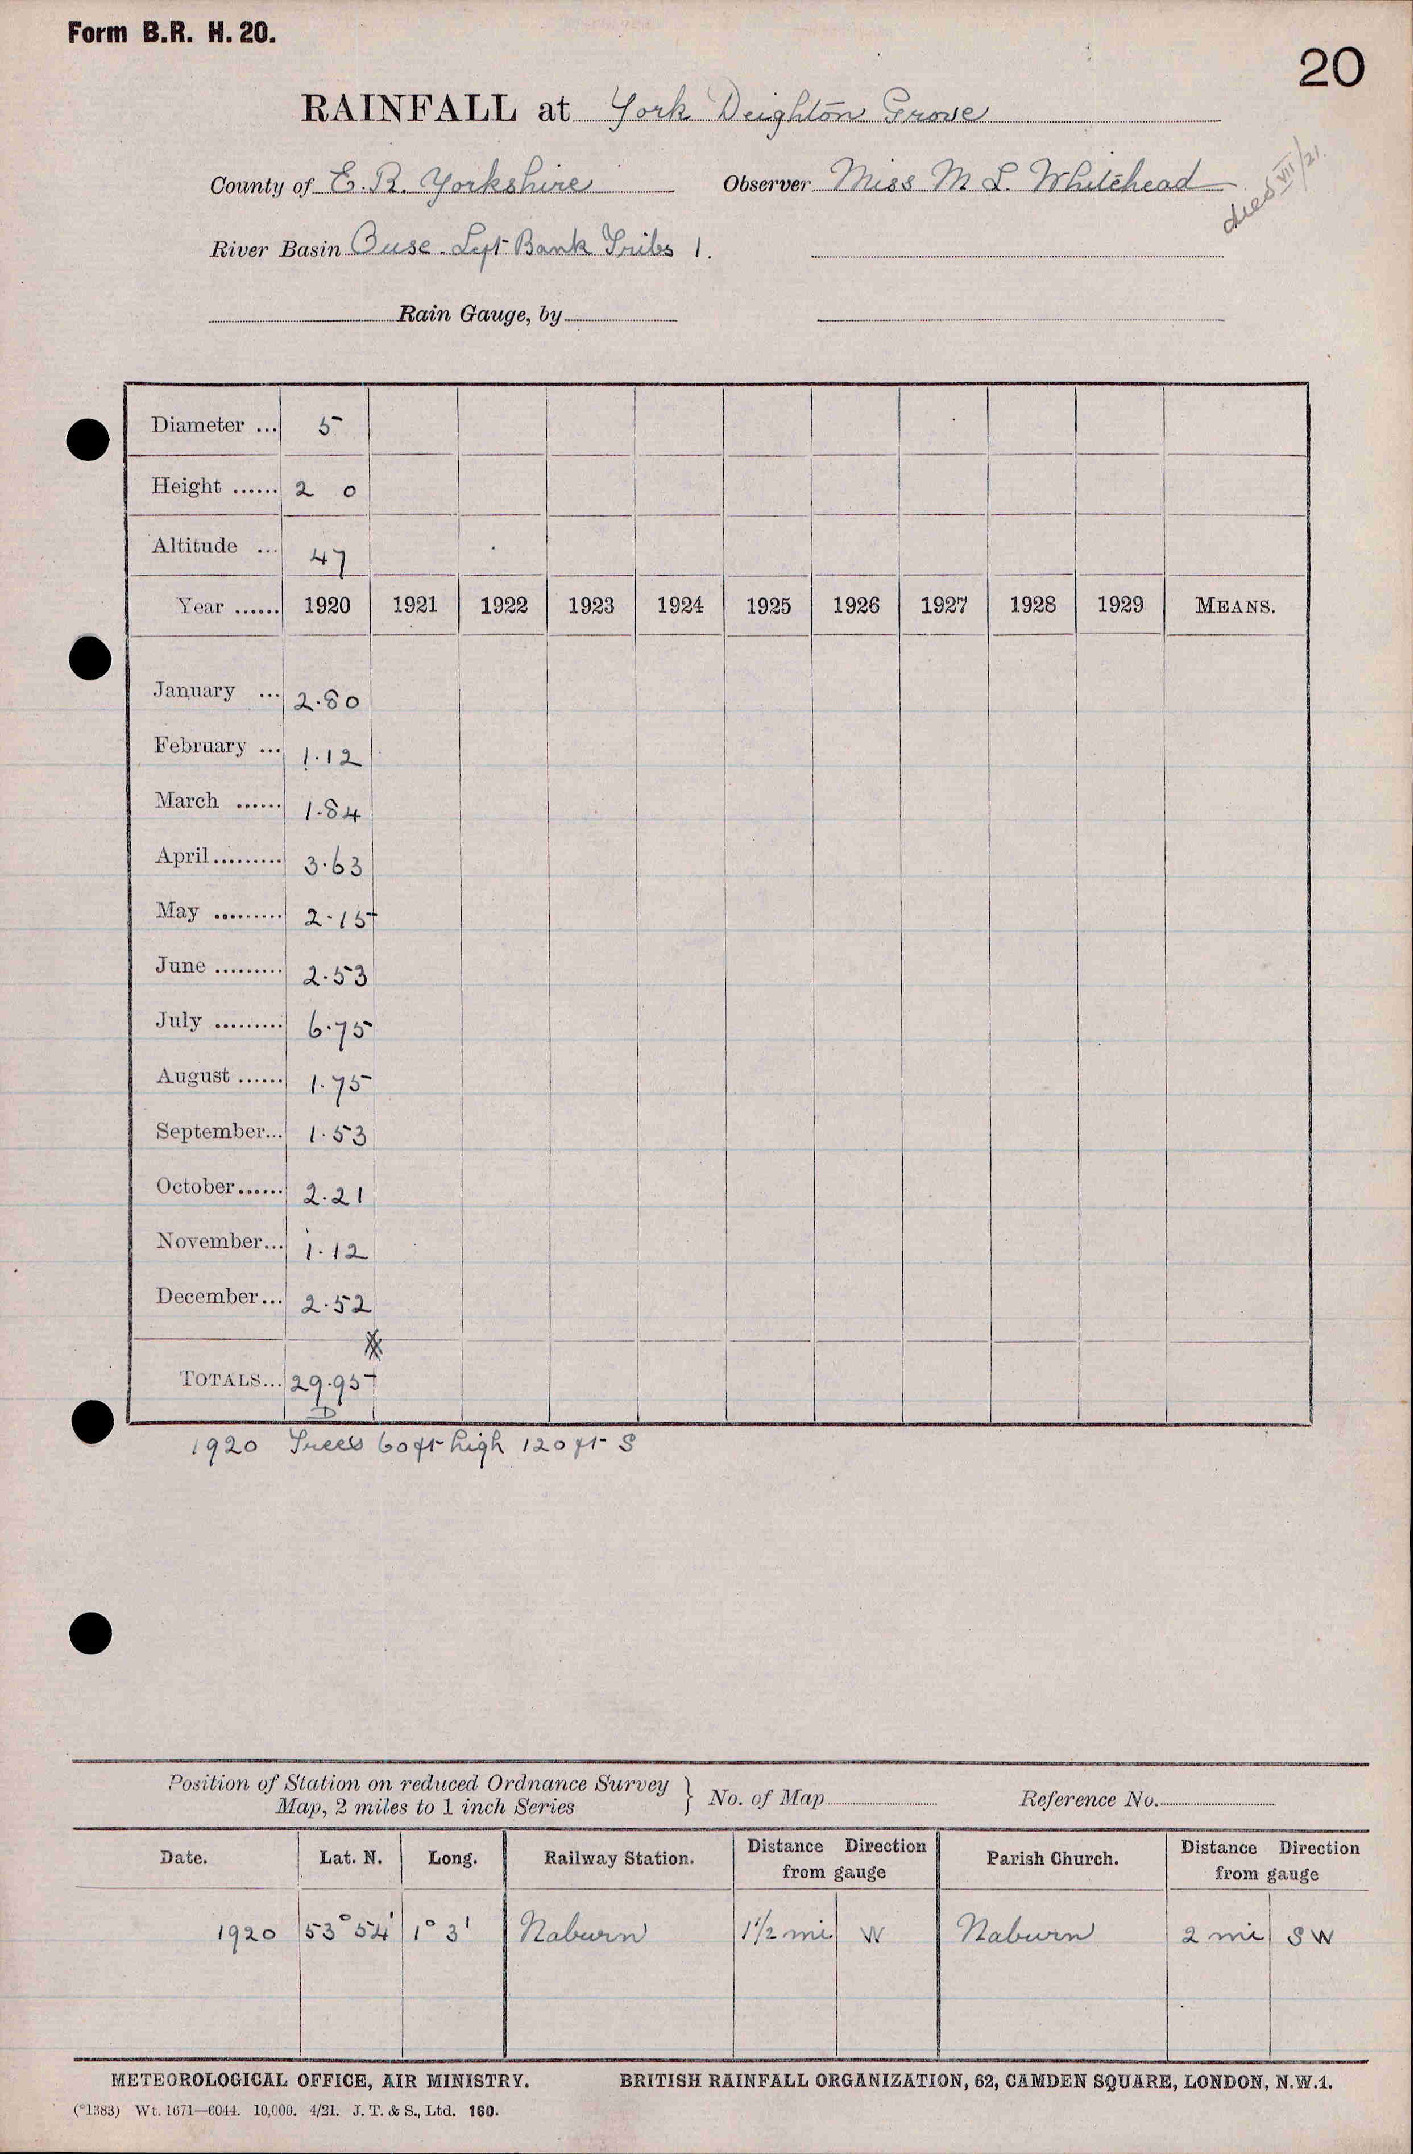 Form B.R. H. 20.
20
RAINFALL at York Deighton Grove
County of E. R. Yorkshire Observer Miss M L. Whitehead
died VII/21.
River Basin Ouse. Left Bank Tribs 1.
Rain Gauge, by
Diameter ... 5
Height ...... 2 0
Altitude ... 47
Year ...... 1920 1921 1922 1923 1924 1925 1926 1927 1928 1929 MEANS.
January ... 2.80
February ... 1.12
March ...... 1.84
April......... 3.63
May ......... 2.15
June ......... 2.53
July ......... 6.75
August ...... 1.75
September... 1.53
October...... 2.21
November... 1.12
December... 2.52
TOTALS... 29.95
D
1920 Trees 60 ft high 120 ft S
Position of Station on reduced Ordnance Survey
Map, 2 miles to 1 inch Series } No. of Map Reference No.
Date. Lat. N. Long. Railway Station. Distance Direction from gauge Parish Church. Distance Direction from gauge
1920 53° 54' 1° 3' Naburn 1 1/2 mi W Naburn 2 mi SW
METEOROLOGICAL OFFICE, AIR MINISTRY. BRITISH RAINFALL ORGANIZATION, 62, CAMDEN SQUARE, LONDON, N.W.1.
(*1383) Wt. 1671—6044. 10,000. 4/21. J. T. & S., Ltd. 160.